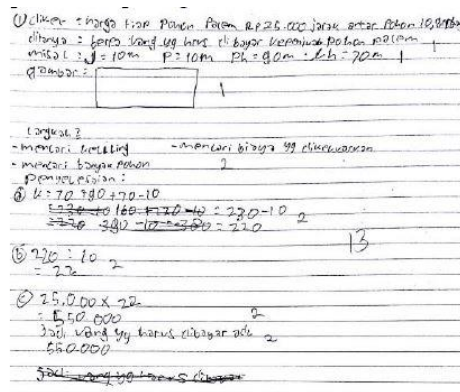 ① diket : harga tiap Pohon Palem Rp 25.000 jarak antar Pohon 10,
ditanya : uang yg harus dibayar pohon palem 1
misal : J = 10m P = 10m Ph = 90m lh = 70m 1
gambar : 1
Langkah 2
- mencari keliling - mencari biaya yg dikeluarkan
- mencari banyak Pohon 2
Penyelesaian :
ⓐ k = 70 + 90 + 70 - 10
= 230 - 10 2
= 220
13
ⓑ 220 : 10
= 22 2
ⓒ 25.000 x 22
= 550.000 2
Jadi uang yg harus dibayar ada 2
550.000
Jadi uang yg harus dibayar